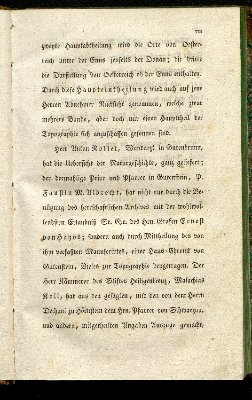 VII
zweyte Hauptabtheilung wird die Orte von Oester-
reich unter der Enns jenseits der Donau; die dritte
die Darstellung von Oesterreich ob der Enns enthalten.
Durch diese Haupteintheilung wird auch auf jene
Herren Abnehmer Rücksicht genommen, welche zwar
mehrere Bände, aber doch nur einen Haupttheil der
Topographie sich anzuschaffen gesonnen sind.
Herr Anton Rollet, Wundarzt in Gutenbrunn,
hat die Uebersicht der Naturgeschichte, ganz geliefert;
der dermahlige Prior und Pfarrer in Gutenstein, P.
Faustin M. Albrecht, hat nicht nur durch die Be-
nützung des herrschaftlichen Archives mit der wohlwol-
lendsten Erlaubniß Sr. Exc. des Hrn. Grafen Ernest
von Hoyos; sondern auch durch Mittheilung des von
ihm verfaßten Manuscriptes, einer Haus-Chronik von
Gutenstein, Vieles zur Topographie beygetragen. Der
Herr Kämmerer des Stiftes Heiligenkreuz, Malachias
Koll, hat aus den gesagten, und den von dem Herrn
Dechant zu Hörnstein dem Hrn. Pfarrer von Schwarzau
und andern, mitgetheilten Angaben Auszüge gemacht,